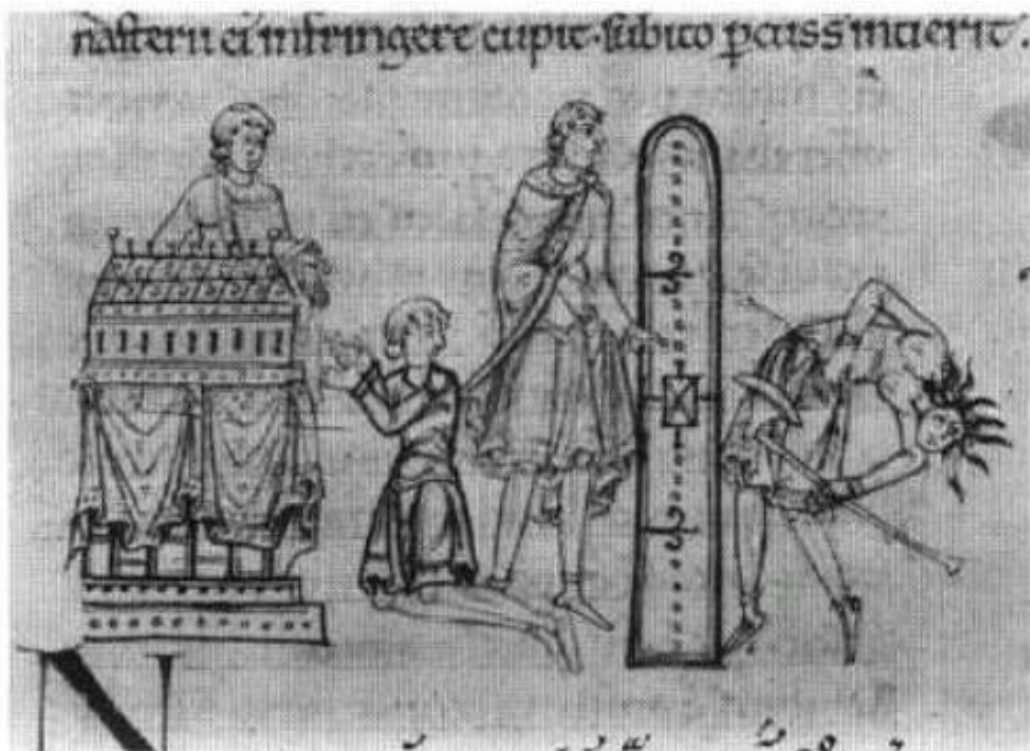 nasterii ei infringere cupit. subito pcuss' intierit.
N